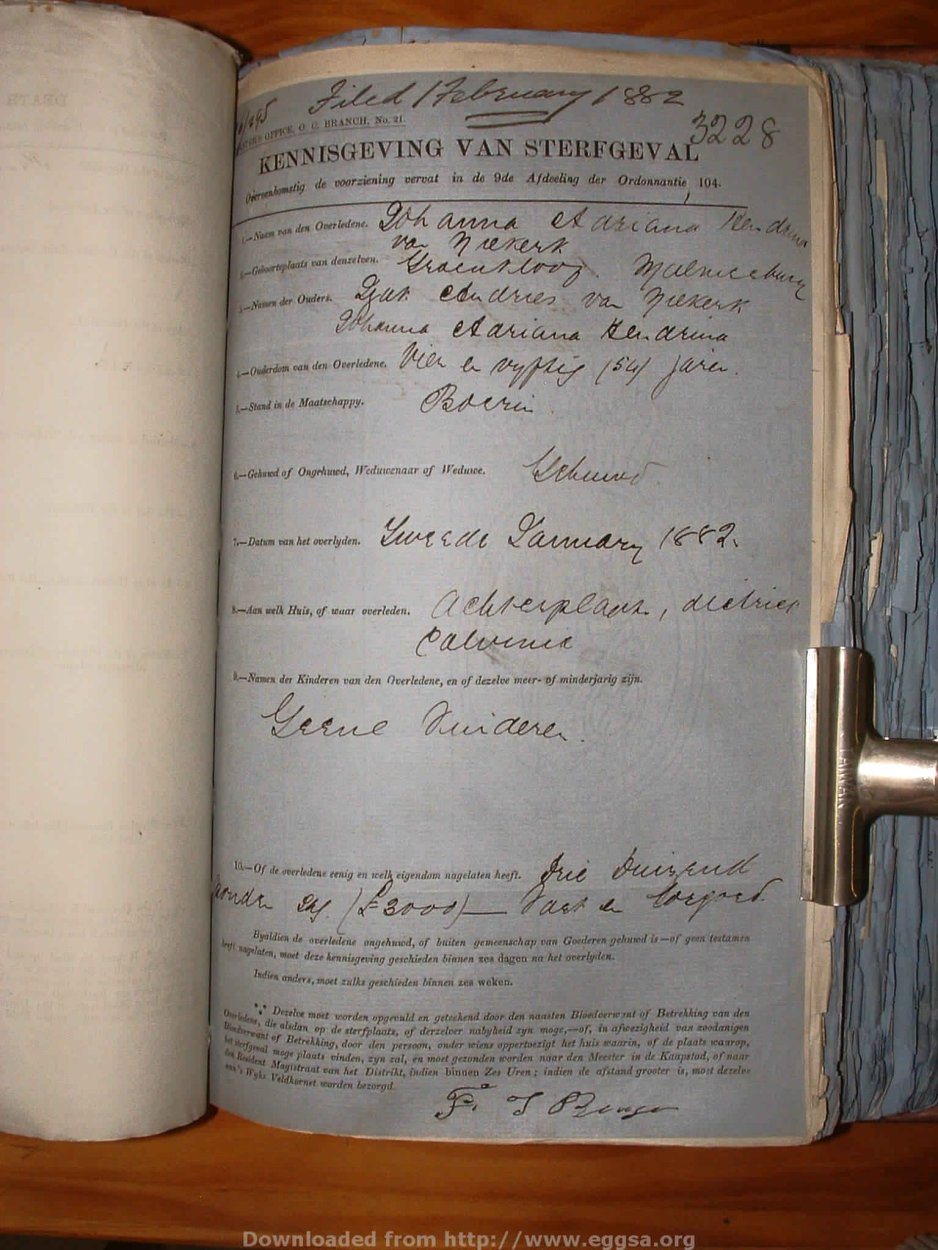 Filed 1 February 1882
OFFICE, O. O. BRANCH, No. 21.
3228
KENNISGEVING VAN STERFGEVAL
Overeenkomstig de voorziening vervat in de 9de Afdeeling der Ordonnantie, 104.
1.—Naam van den Overledene. Johanna Adriana Hendrina
van Niekerk
2.—Geboorteplaats van denzelven. Groenkloof. Malmesbury
3.—Namen der Ouders. Izak Andries van Niekerk
Johanna Adriana Hendrina
4.—Ouderdom van den Overledene. Vier en vyftig (54) jaren.
5.—Stand in de Maatschappy. Boerin
6.—Gehuwd of Ongehuwd, Weduwenaar of Weduwe. Gehuwd
7.—Datum van het overlyden. Tweede January 1882.
8.—Aan welk Huis, of waar overleden. Achterplaats, district
Calvinia
9.—Namen der Kinderen van den Overledene, en of dezelve meer- of minderjarig zijn.
Geene Kinderen.
10.—Of de overledene eenig en welk eigendom nagelaten heeft. Drie Duizend
ponden Stg. (£3000) — Vast en losgoed.
Byaldien de overledene ongehuwd, of buiten gemeenschap van Goederen gehuwd is—of geen testament
heeft nagelaten, moet deze kennisgeving geschieden binnen zes dagen na het overlyden.
Indien anders, moet zulks geschieden binnen zes weken.
*** Dezelve moet worden opgevuld en geteekend door den naasten Bloedverwant of Betrekking van den
Overledene, die alsdan op de sterfplaats, of derzelver nabyheid zyn moge,—of, in afwezigheid van zoodanigen
Bloedverwant of Betrekking, door den persoon, onder wiens oppertoezigt het huis waarin, of de plaats waarop,
het sterfgeval moge plaats vinden, zyn zal, en moet gezonden worden naar den Meester in de Kaapstad, of naar
den Resident Magistraat van het Distrikt, indien binnen Zes Uren; indien de afstand grooter is, moet dezelve
aan 's Wyks Veldkornet worden bezorgd.
Downloaded from http://www.eggsa.org